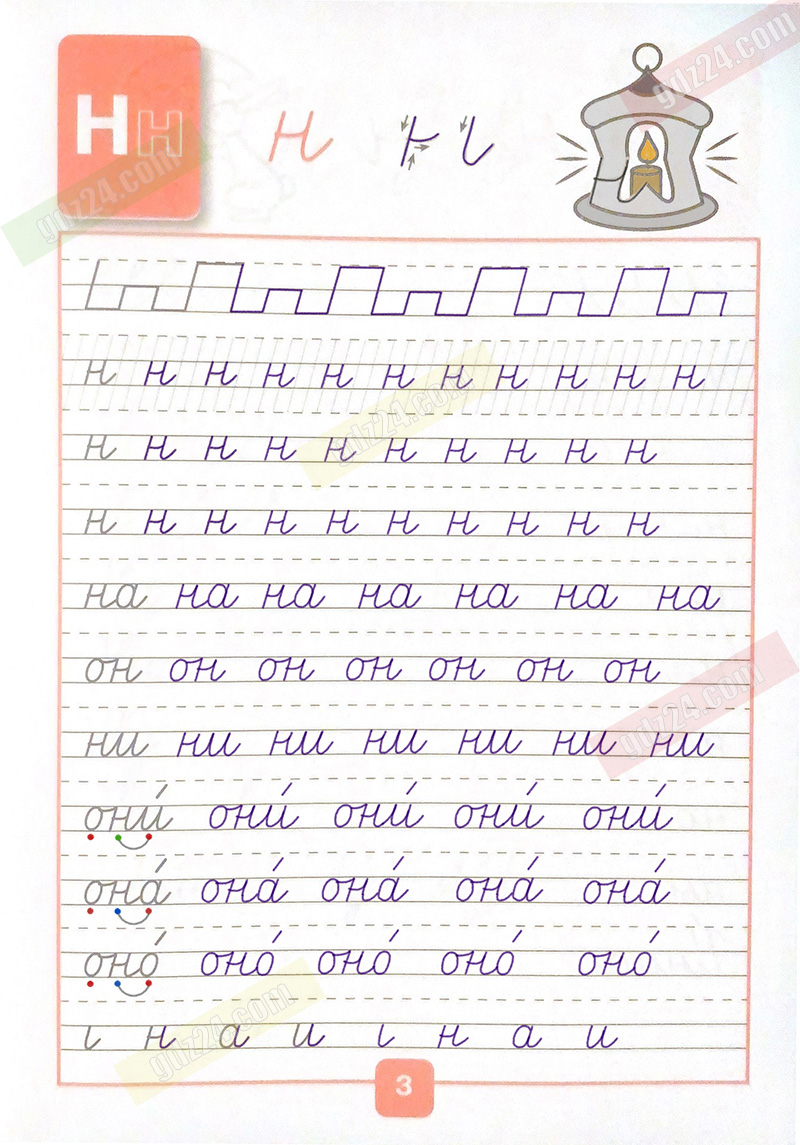 Нн н
gdz24.com
gdz24.com
н н н н н н н н н н н
gdz24.com
н н н н н н н н н н
н н н н н н н н н н
на на на на на на на
он он он он он он он
gdz24.com
ни ни ни ни ни ни ни
они́ они́ они́ они́ они́
она́ она́ она́ она́ она́
оно́ оно́ оно́ оно́ оно́
gdz24.com
ı н а и ı н а и
3